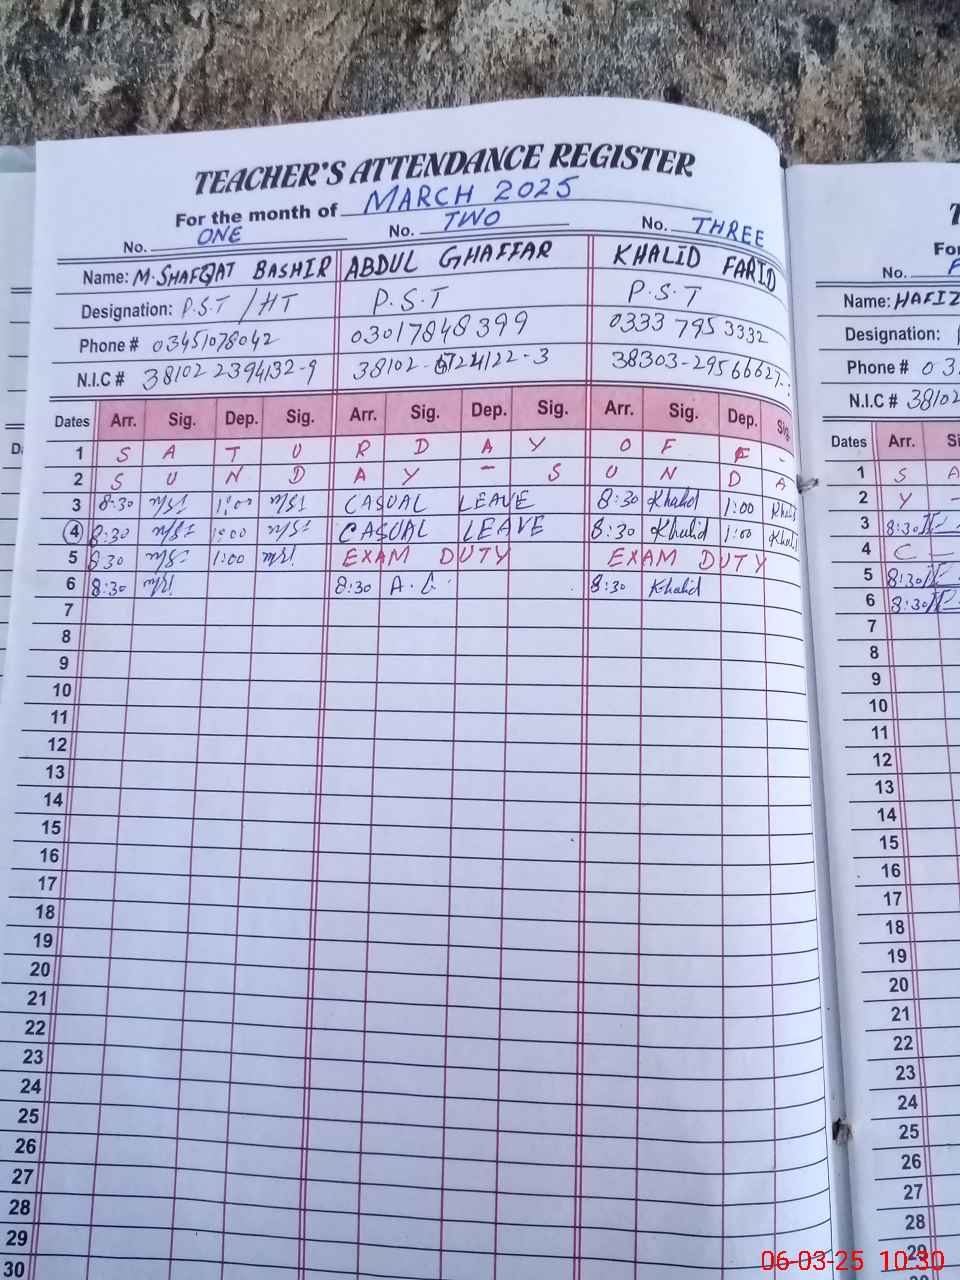 TEACHER'S ATTENDANCE REGISTER
For the month of MARCH 2025
No. ONE No. TWO No. THREE
Name: M. SHAFQAT BASHIR ABDUL GHAFFAR KHALID FARID
Designation: P.S.T / HT P.S.T P.S.T
Phone # 03451078042 03017848399 0333 7953332
N.I.C # 38102 2394132-9 38102- 6124122-3 38303-2956662
Dates Arr. Sig. Dep. Sig. Arr. Sig. Dep. Sig. Arr. Sig. Dep. Sig.
1 S A T U R D A Y O F F -
2 S U N D A Y - S U N D A
3 8:30 1:00 CASUAL LEAVE 8:30 Khalid 1:00 Khalid
4 8:30 1:00 CASUAL LEAVE 8:30 Khalid 1:00 Khalid
5 8:30 1:00 EXAM DUTY EXAM DUTY
6 8:30 8:30 A.G. 8:30 Khalid
7
8
9
10
11
12
13
14
15
16
17
18
19
20
21
22
23
24
25
26
27
28
29
30
No.
Name: HAFIZ
Designation:
Phone # 03
N.I.C # 38102
Dates Arr.
1 S A
2 Y -
3 8:30
4 C -
5 8:30
6 8:30
7
8
9
10
11
12
13
14
15
16
17
18
19
20
21
22
23
24
25
26
27
28
29
06-03-25 10:30